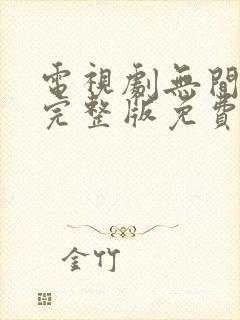 電視劇無間
完整版免費
金竹